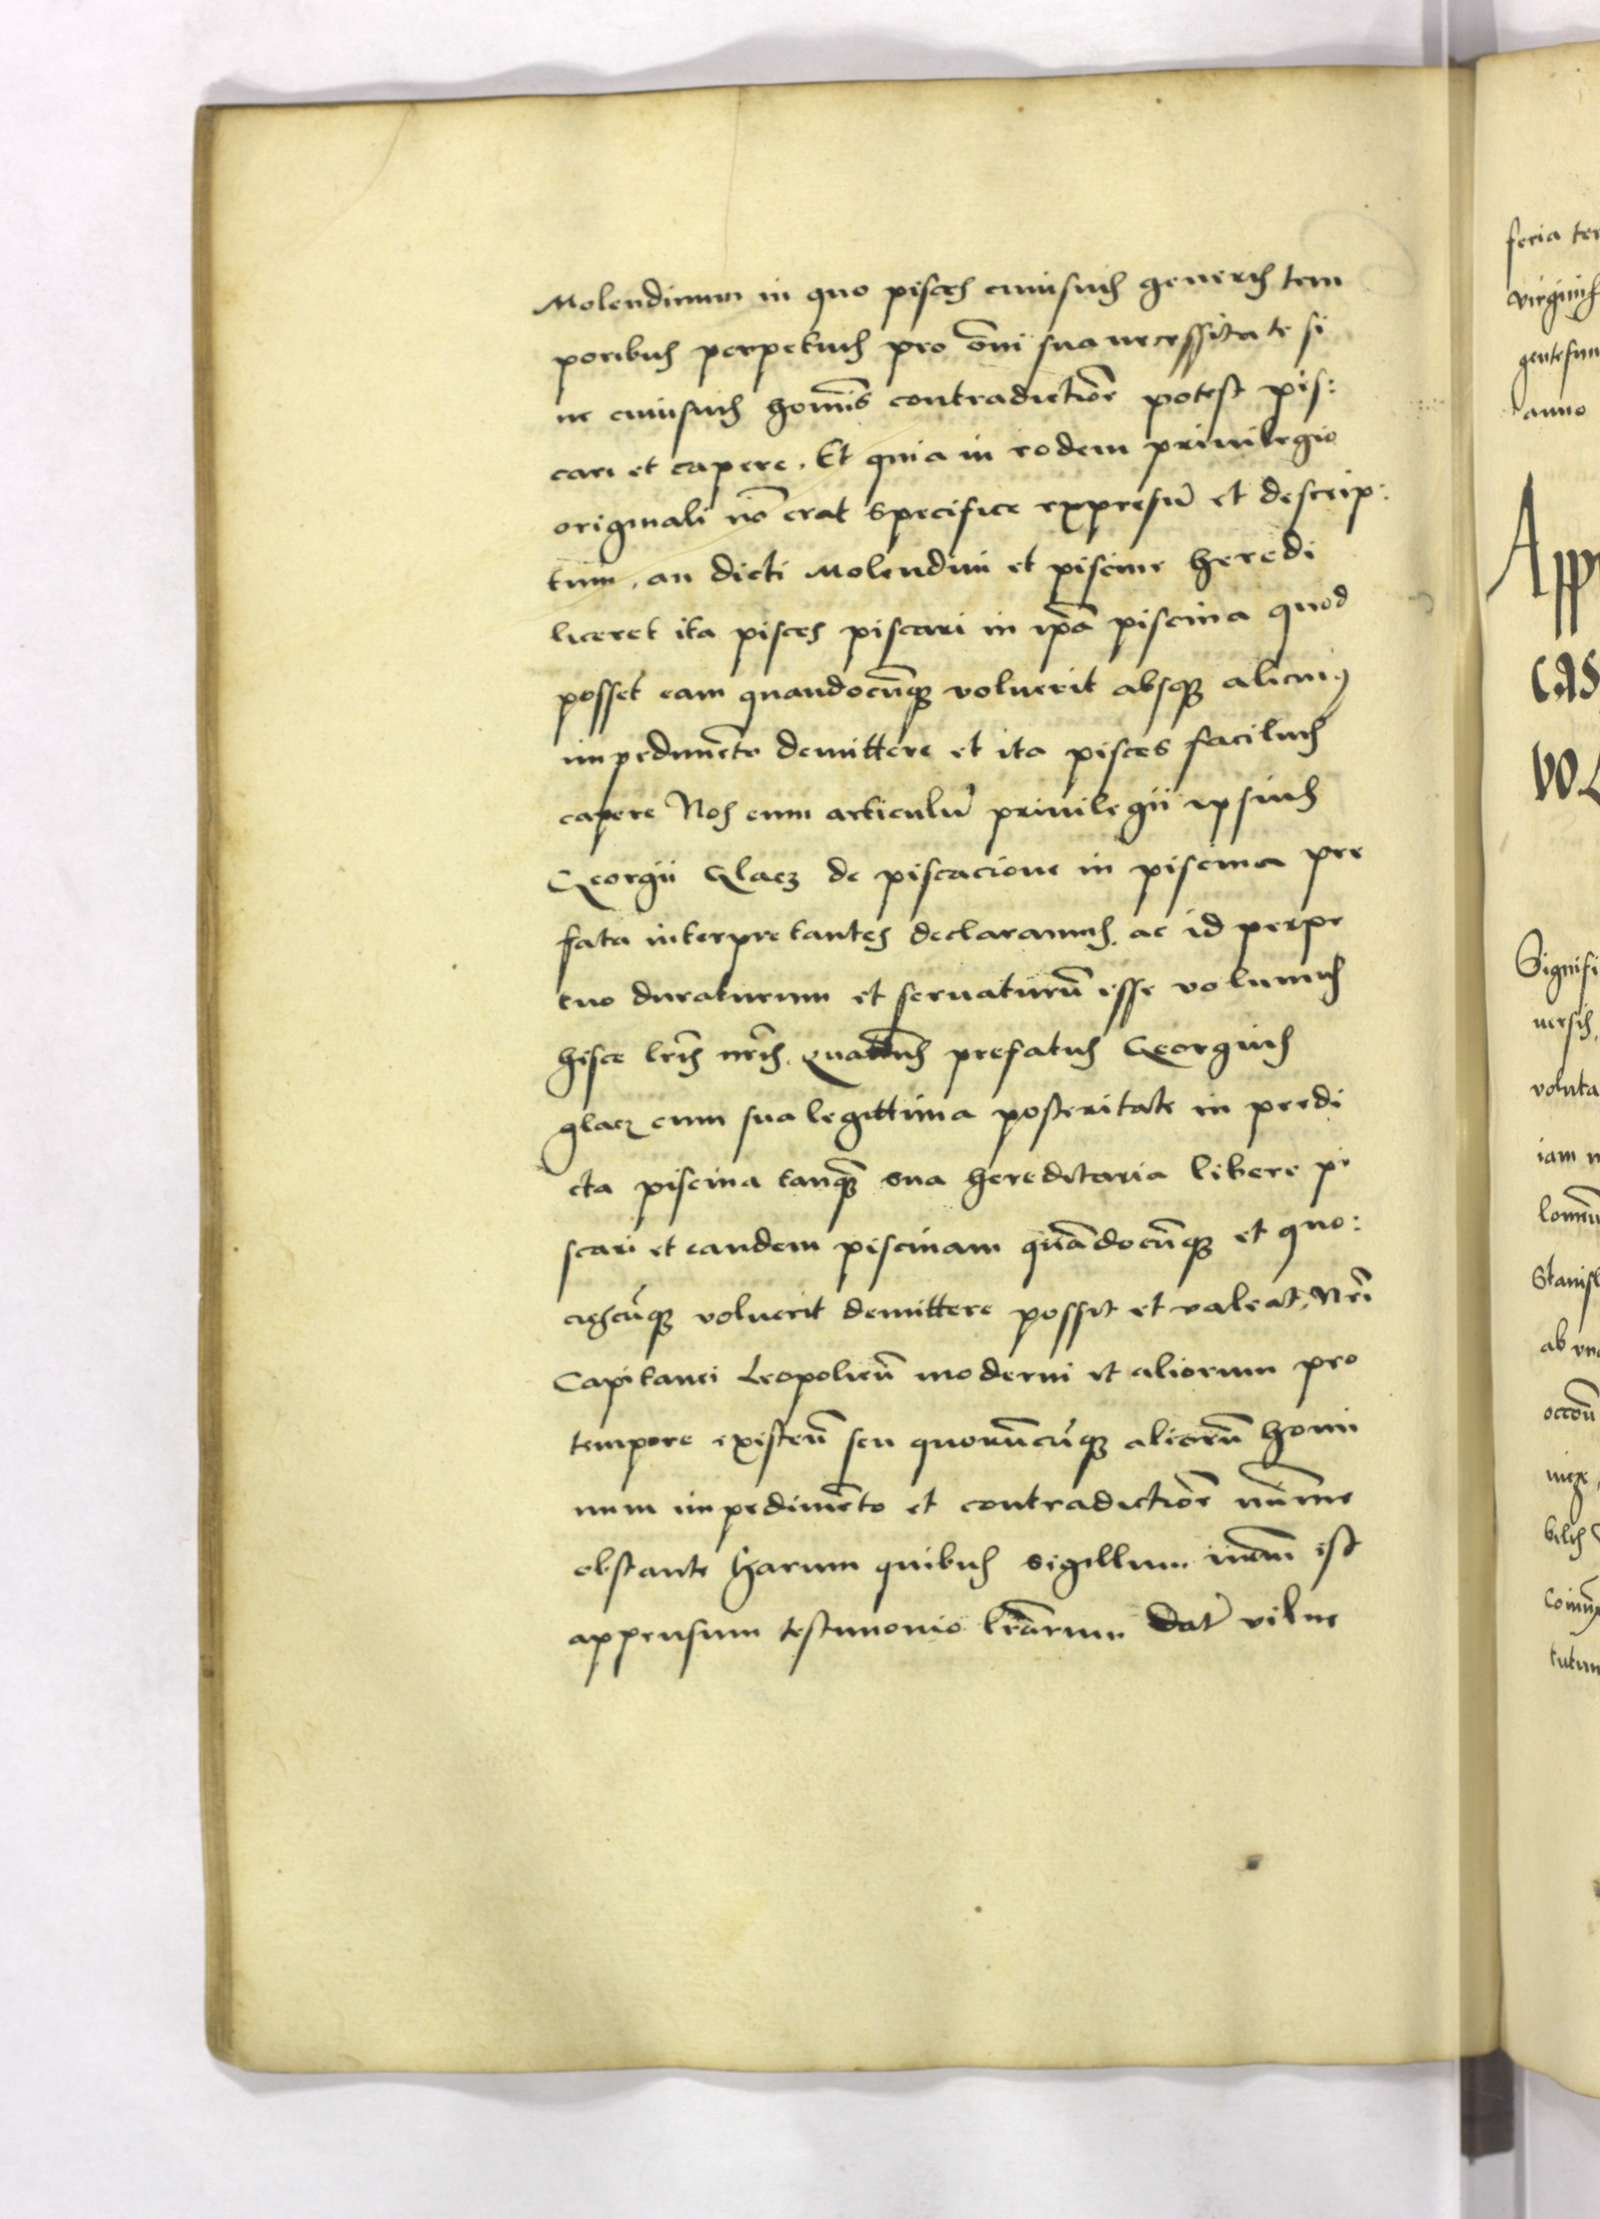 Molendinum in quo pisces cuiusuis generis tem
poribus perpetuis pro oı̄ni sua necessitate si
ne cuiusuis homīs contradictiōe potest pis:
cari et capere. Et quia in eodem priuilegio
originali nō erat specifice expressū et descrip:
tum, an dicti Molendini et piscine heredi
liceret ita pisces piscari in ip̄a piscina quod
posset eam quandocūq; voluerit absq; alicui9
impedimēto demittere et ita pisces facilius
capere Nos eum articulū priuilegii ipsius
Georgii Glacz de piscacione in piscina pre
fata interpretantes declaramus, ac id perpe
tuo duraturum et seruaturū esse volumus
hisce lr̄is nr̄is. Quatenus prefatus Georgius
Glacz cum sua legittima posteritate in predi
cta piscina tanq̄ sua hereditaria libere pi
scari et eandem piscinam quādocūq; et quo:
ciescūq; voluerit demittere possit et valeat, Nr̄i
Capitanei Leopolieñ moderni et aliorum pro
tempore existeñ seu quorūcūq; aliorū homi
num impedimēto et contradictiōe mīnime
obstante Harum quibus sigillum nr̄m est
appensum testimonio lr̄arum Dat̄ vilne
feria ter
virginis
gentesim
anno
App
CAS
VOL
Signifi
uersis,
volunta
iam n
Stanisl
ab vn
tutum